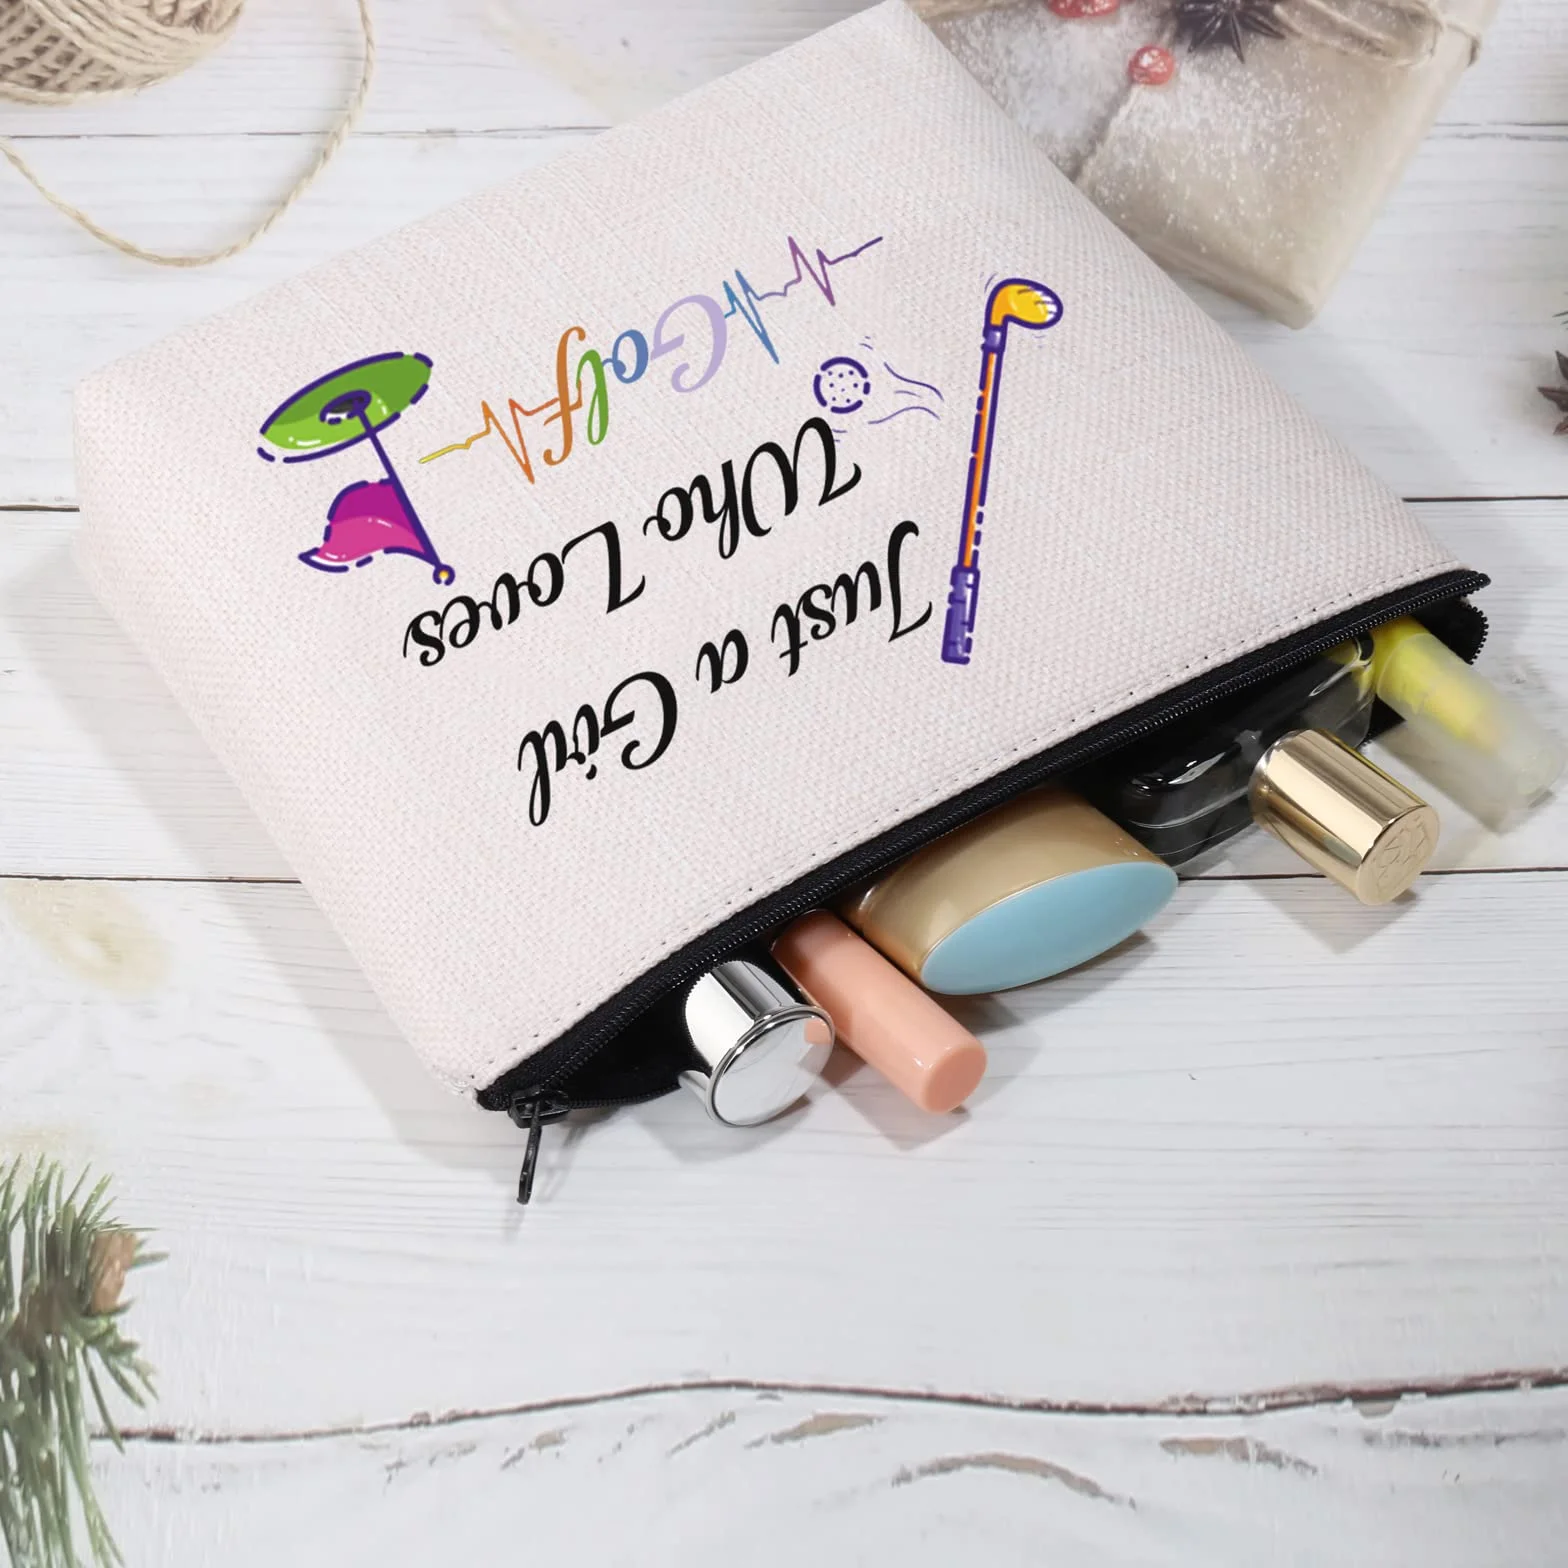 Just a Girl
Who Loves
Golf